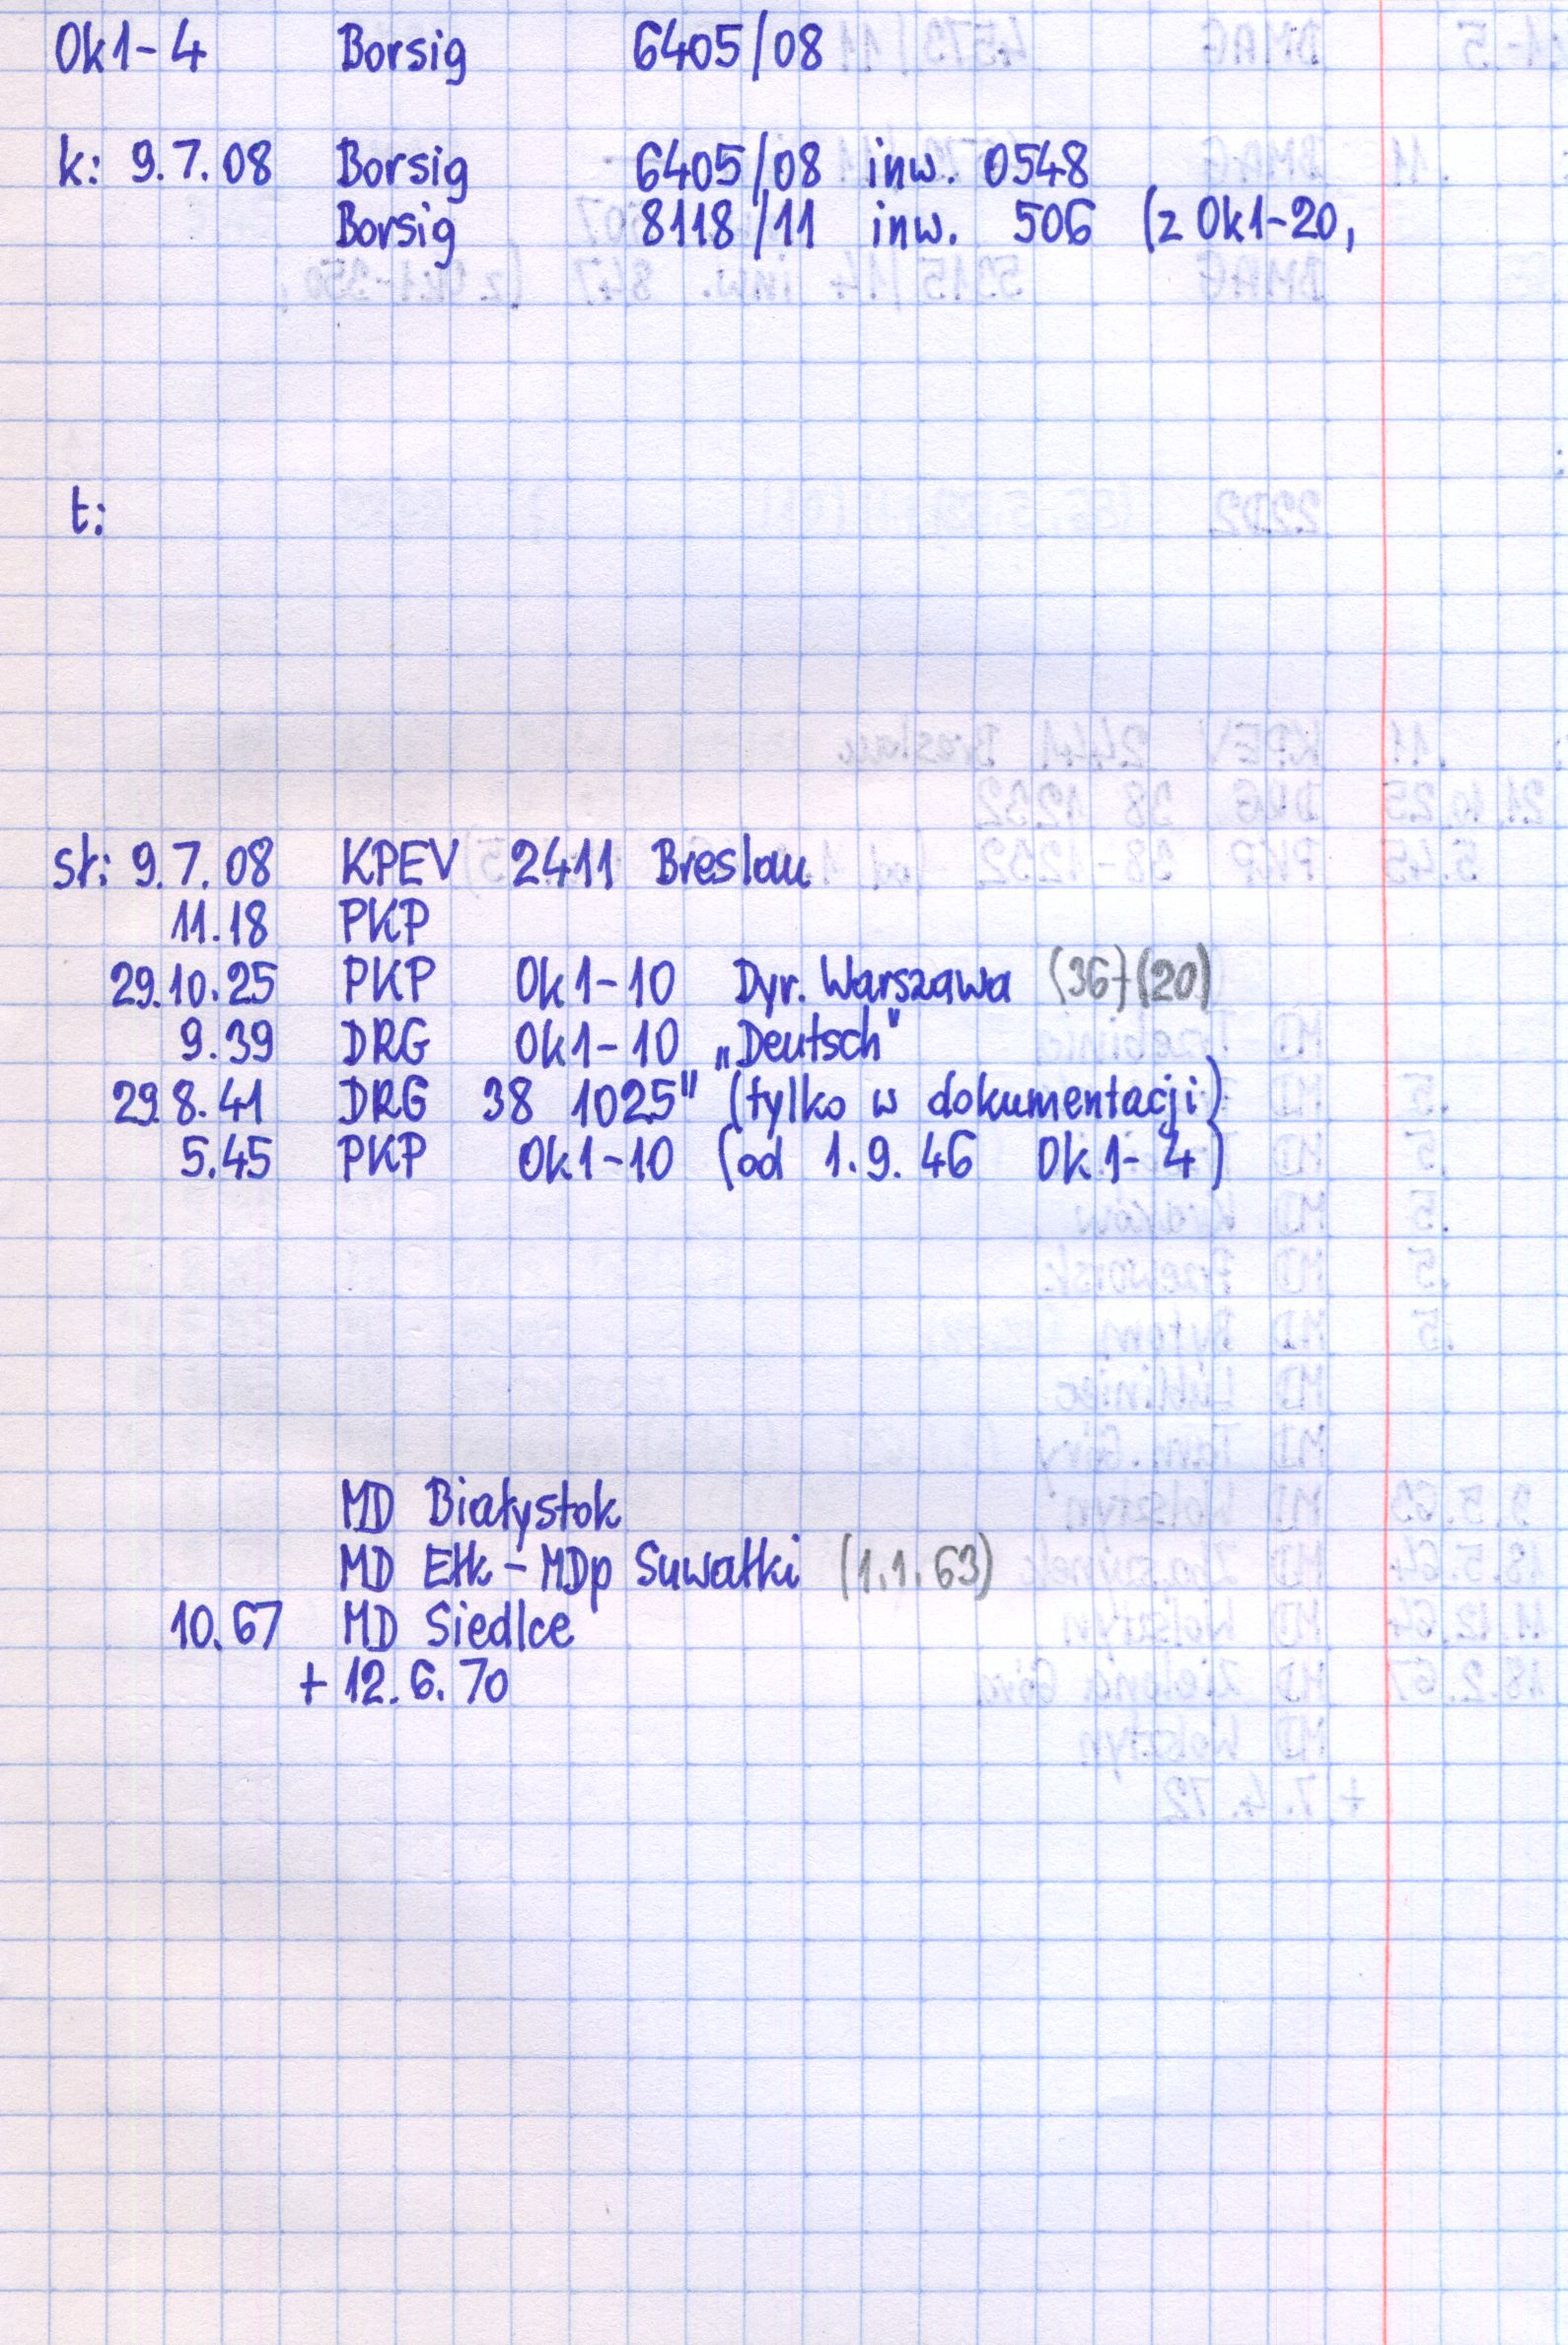 Ok1-4 Borsig 6405/08
k: 9.7.08 Borsig 6405/08 inw. 0548
Borsig 8118/11 inw. 506 (z Ok1-20,
t:
st: 9.7.08 KPEV 2411 Breslau
11.18 PKP
29.10.25 PKP Ok1-10 Dyr. Warszawa (36)(20)
9.39 DRG Ok1-10 „Deutsch"
29.8.41 DRG 38 1025" (tylko w dokumentacji)
5.45 PKP Ok1-10 (od 1.9.46 Ok1-4)
MD Białystok
MD Ełk - MDp Suwałki (1.1.63)
10.67 MD Siedlce
+ 12.6.70